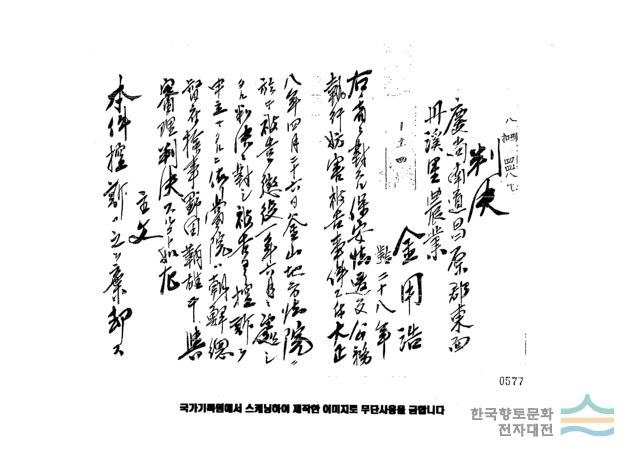 判決
慶尚南道昌原郡東面
丹溪里 農業
金用浩
二十八年
右ノ者ニ對スル保安法違反公務
執行妨害被告事件ニ付大正
八年四月二十六日釜山地方法院ニ
於テ被告ヲ懲役一年六月ニ處シ
タル判決ニ對シ被告ヨリ控訴ノ
申立アリタルニ依リ當院ハ朝鮮總
督府檢事 與
審理判決スルコト如左
主文
本件控訴ハ之ヲ棄却ス
0577
국가기록원에서 스캐닝하여 제작한 이미지로 무단사용을 금합니다
한국향토문화
전자대전